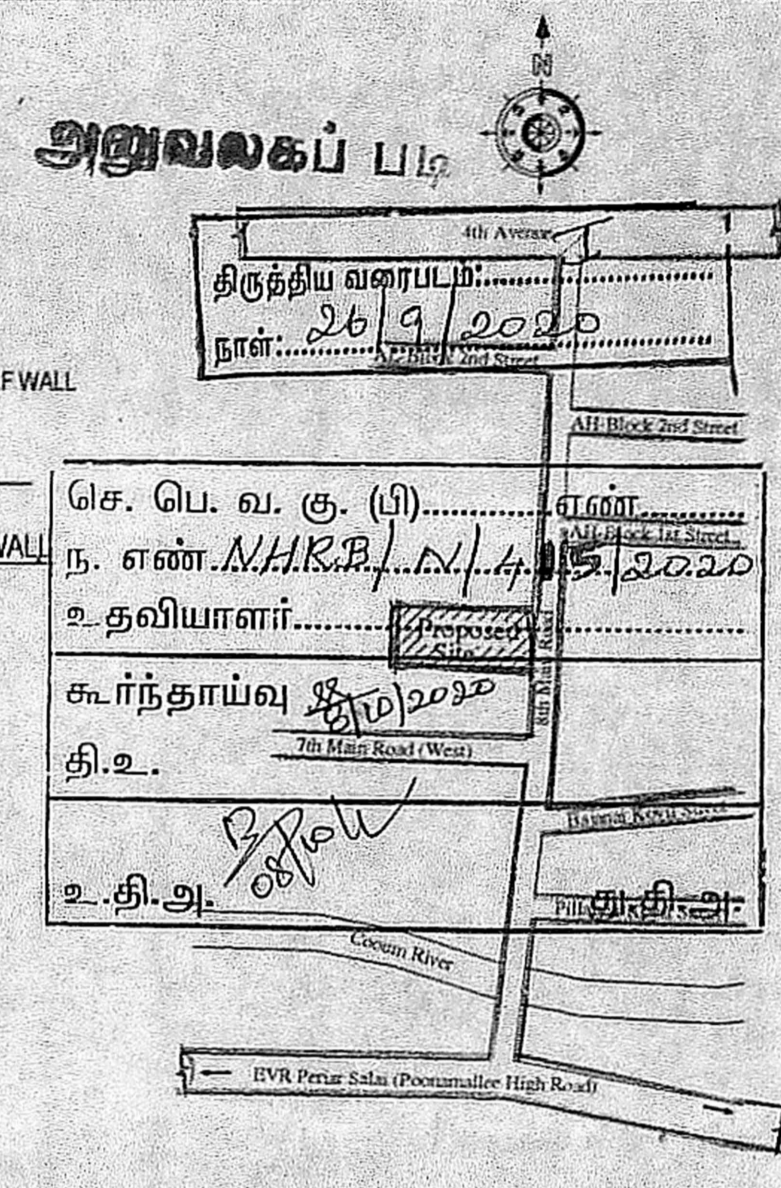 N
அலுவலகப் படி
4th Avenue
திருத்திய வரைபடம்:
நாள்: 26/9/2020
2nd Street
F WALL
AH-Block 2nd Street
செ. பெ. வ. கு. (பி)..........எண்..........
AH-Block 1st Street
WALL
ந. எண். NHRB/N/415/2020
உதவியாளர்
Proposed
Site
8th Main Road
கூர்ந்தாய்வு 8/10/2020
7th Main Road (West)
தி.உ.
Street
08/10
உ.தி.அ.
து.தி.அ.
Cooum River
EVR Periar Salai (Poonamallee High Road)